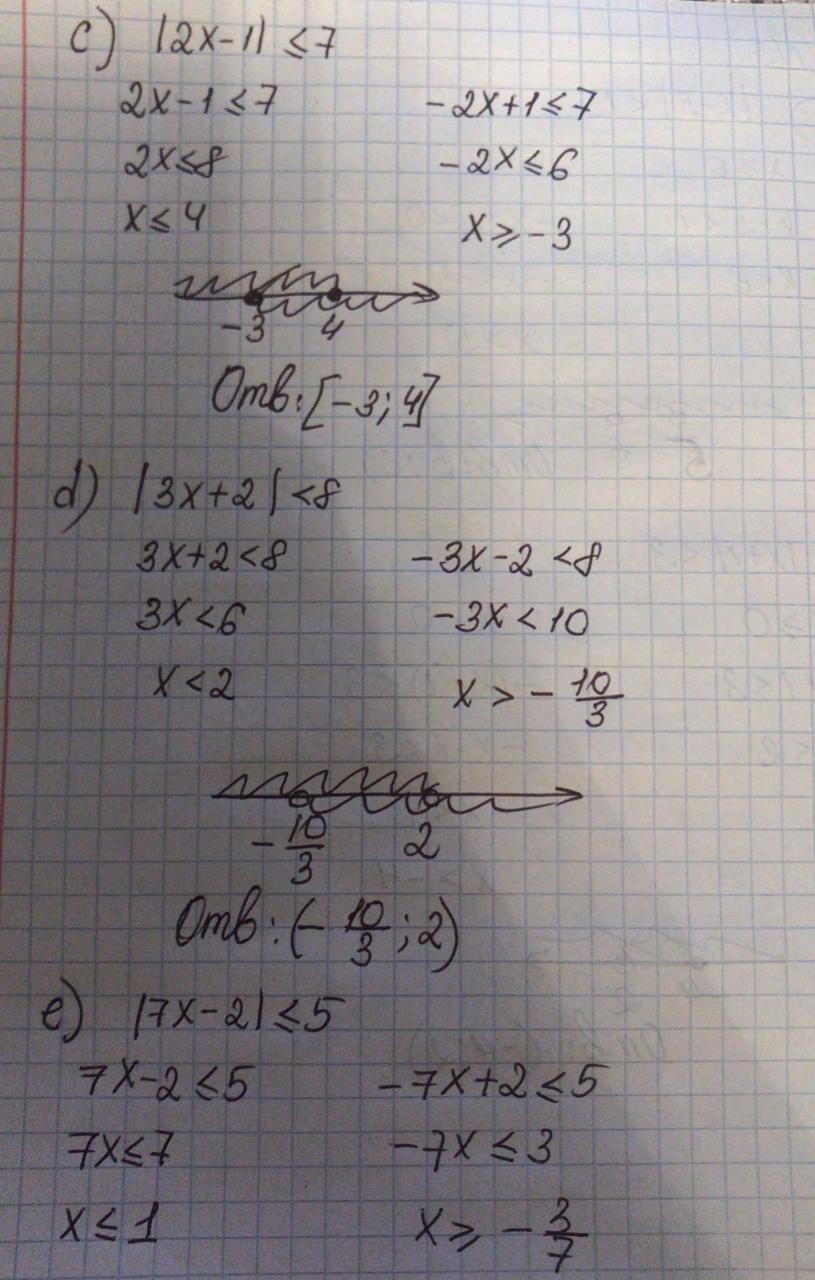 c) |2x-1| ≤ 7
2x-1 ≤ 7 -2x+1 ≤ 7
2x ≤ 8 -2x ≤ 6
x ≤ 4 x ≥ -3
-3 4
Отв: [-3; 4]
d) |3x+2| < 8
3x+2 < 8 -3x-2 < 8
3x < 6 -3x < 10
x < 2 x > -10/3
-10/3 2
Отв: (-10/3; 2)
e) |7x-2| ≤ 5
7x-2 ≤ 5 -7x+2 ≤ 5
7x ≤ 7 -7x ≤ 3
x ≤ 1 x ≥ -3/7